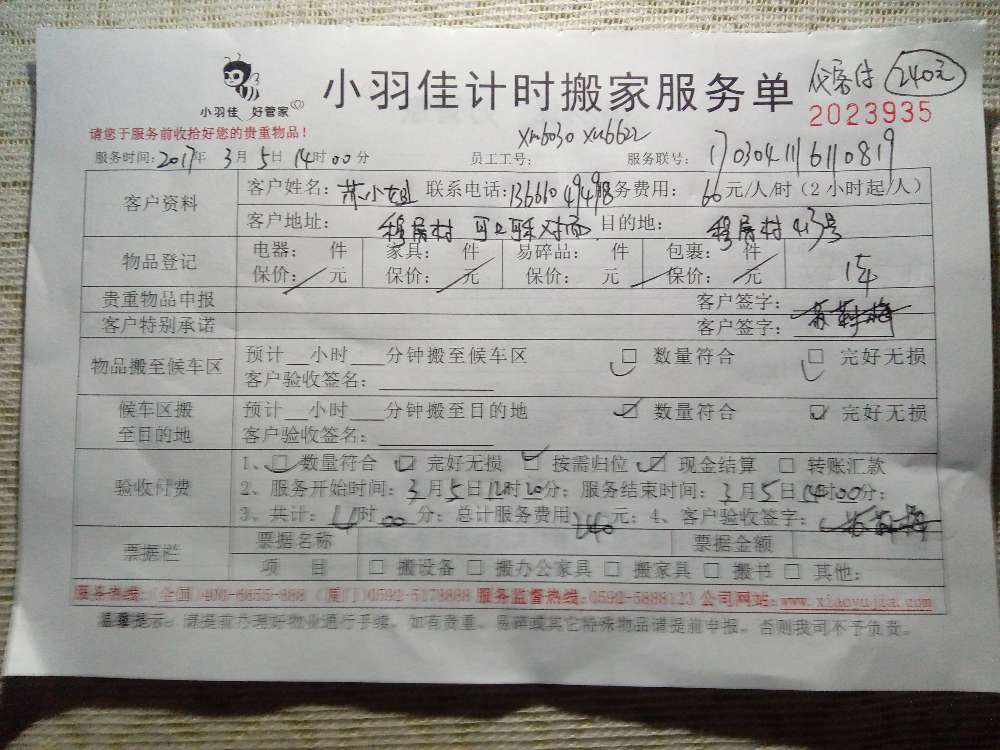 小羽佳 好管家
小羽佳计时搬家服务单
仅客付 240元
2023935
请您于服务前收拾好您的贵重物品！
服务时间：2017年 3月5日 14时00分 员工工号： xm6030 xm6622 服务联号： 1703041116110819
客户资料
客户姓名：苏小姐 联系电话：13666049498 服务费用：60元/人/时（2小时起/人）
客户地址： 穆厝村 对面 目的地： 穆厝村413号
物品登记
电器： 件 家具： 件 易碎品： 件 包裹： 件
保价： 元 保价： 元 保价： 元 保价： 元
1车
贵重物品申报 客户签字：
客户特别承诺 客户签字：
物品搬至候车区
预计__小时___分钟搬至候车区 □ 数量符合 □ 完好无损
客户验收签名：
候车区搬至目的地
预计__小时___分钟搬至目的地 □ 数量符合 □ 完好无损
客户验收签名：
验收付费
1、□ 数量符合 □ 完好无损 □ 按需归位 □ 现金结算 □ 转账汇款
2、服务开始时间：3月5日12时20分；服务结束时间：3月5日14时00分；
3、共计： 时00分；总计服务费用240元；4、客户验收签字：
票据栏
票据名称 票据金额
项 目 □ 搬设备 □ 搬办公家具 □ 搬家具 □ 搬书 □ 其他：
服务热线：（全国）400-6655-888（厦门）0592-5178888 服务监督热线：0592-5888123 公司网站：www.xiaoyujia.com
温馨提示：请提前办理好物业通行手续。如有贵重、易碎或其它特殊物品请提前申报。否则我司不予负责。